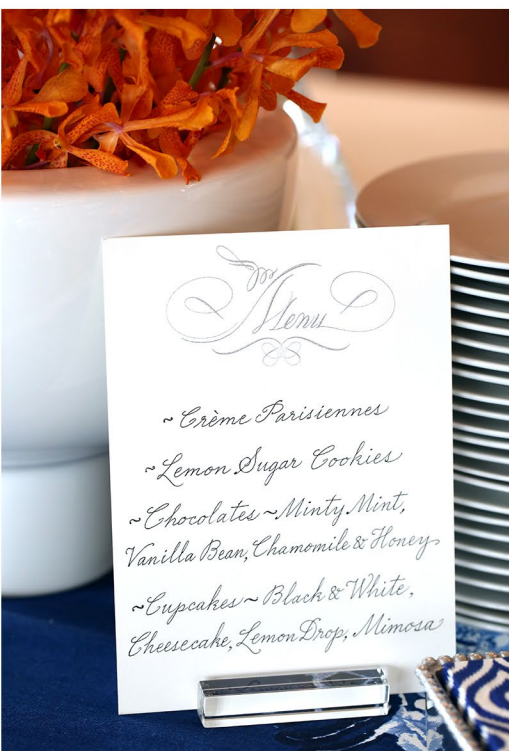 The
Menu
~Crème Parisiennes
~Lemon Sugar Cookies
~Chocolates~Minty Mint,
Vanilla Bean, Chamomile & Honey
~Cupcakes~Black & White,
Cheesecake, Lemon Drop, Mimosa